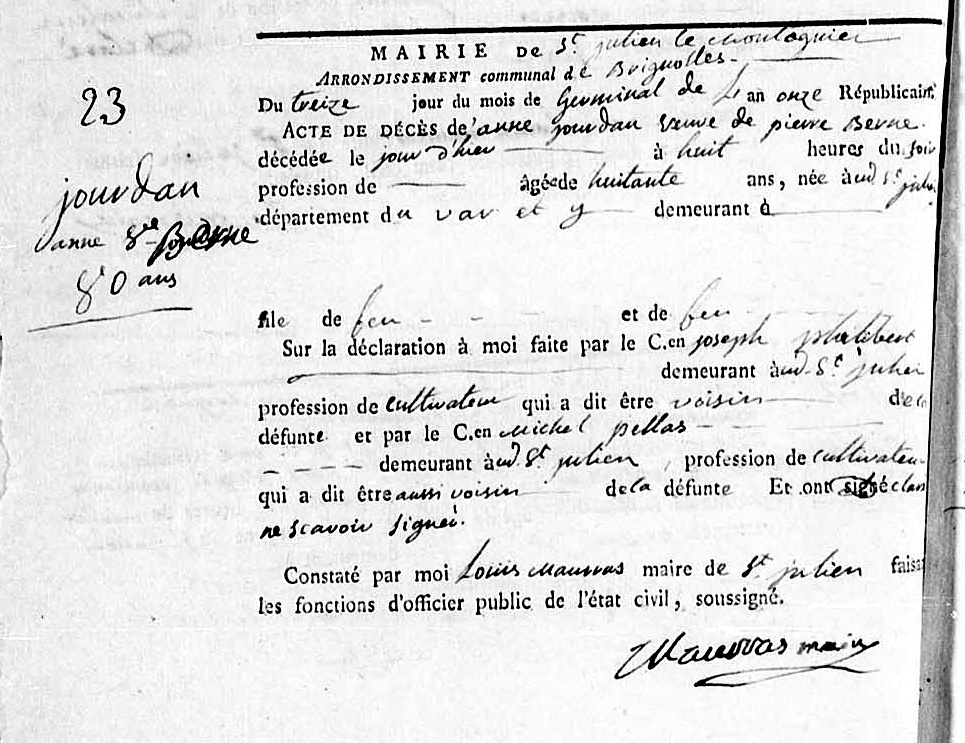 MAIRIE DE St julien le Montagnier
ARRONDISSEMENT communal de Brignolles
23
Du treize jour du mois de Germinal de L'an onze Républicain.
ACTE DE DÉCÈS de anne jourdan veuve de pierre Berne.
décédée le jour d'hier à huit heures du soir
jourdan
profession de âgée de huitante ans, née aud. St julien
anne Vve Berne
département du var et y demeurant à
80 ans
file de feu et de feu
Sur la déclaration à moi faite par le C.en joseph philibert
demeurant aud. St julien
profession de cultivateur qui a dit être voisin de la
défunte et par le C.en Michel pellas
demeurant aud. St julien, profession de cultivateur
qui a dit être aussi voisin de la défunte Et ont signé
ne scavoir signer.
Constaté par moi Louis Maurras maire de St julien faisa
les fonctions d'officier public de l'état civil, soussigné.
Maurras maire